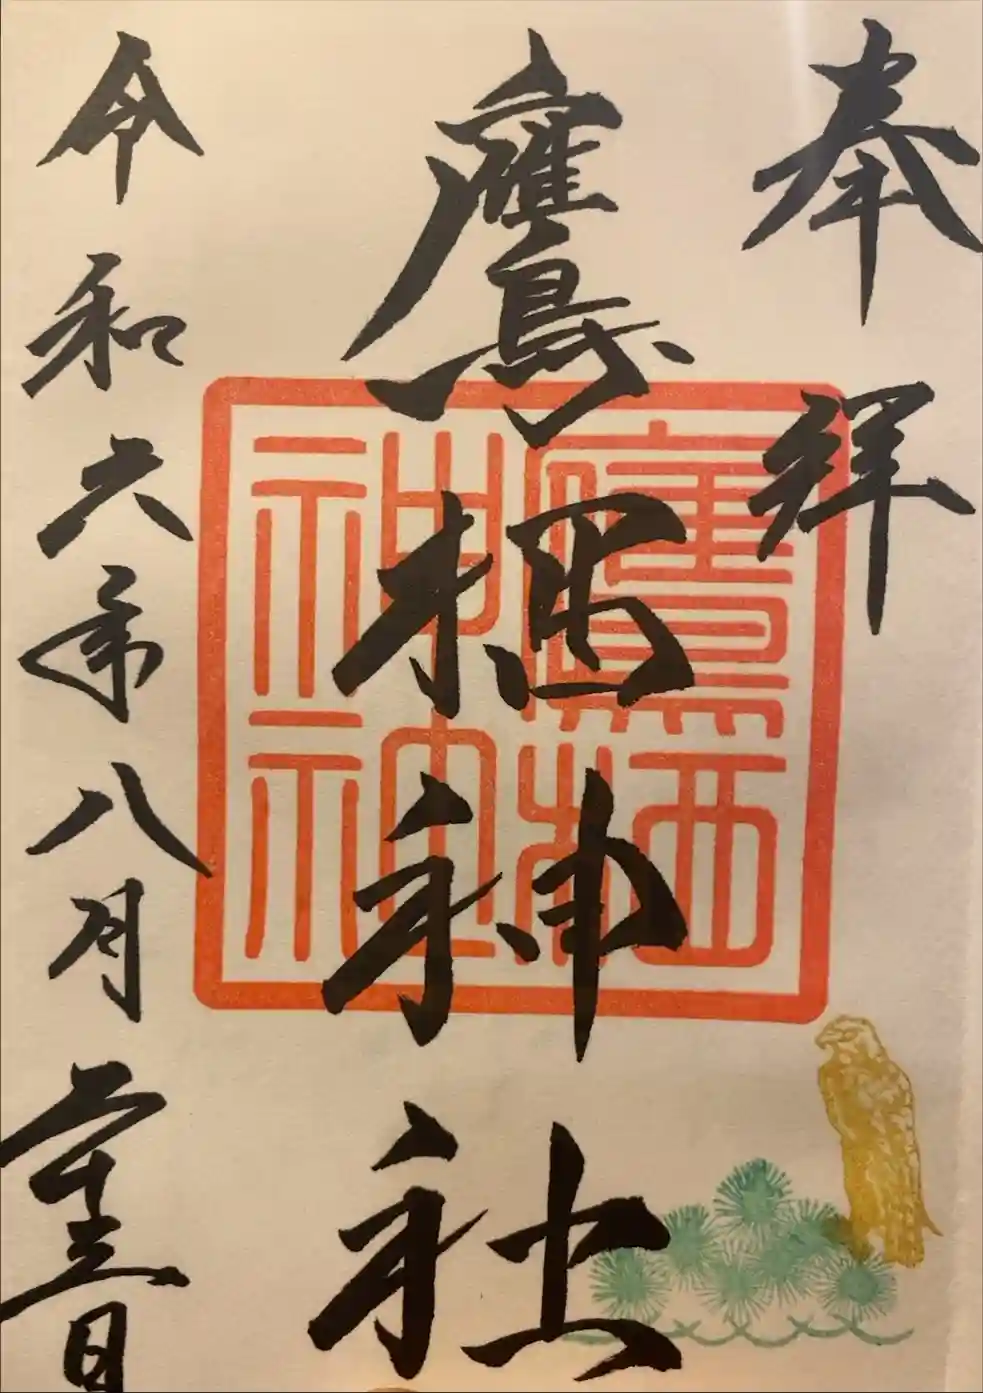 奉拝
鷹栖神社
鷹栖
神社
令和六年八月 日